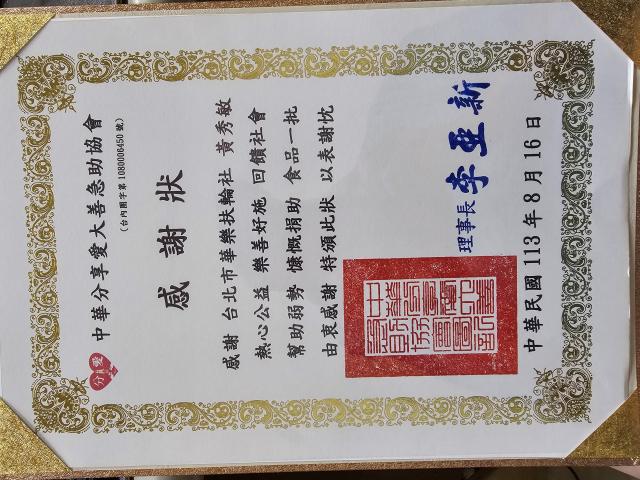 分享愛
中華分享愛大善急助協會
(台內團字第 1080006450 號)
感謝狀
感謝 台北市華樂扶輪社 黃秀敏
熱心公益 樂善好施 回饋社會
幫助弱勢 慷慨捐助 食品一批
由衷感謝 特頒此狀 以表謝忱
理事長 李亞新
中華民國 113 年 8 月 16 日